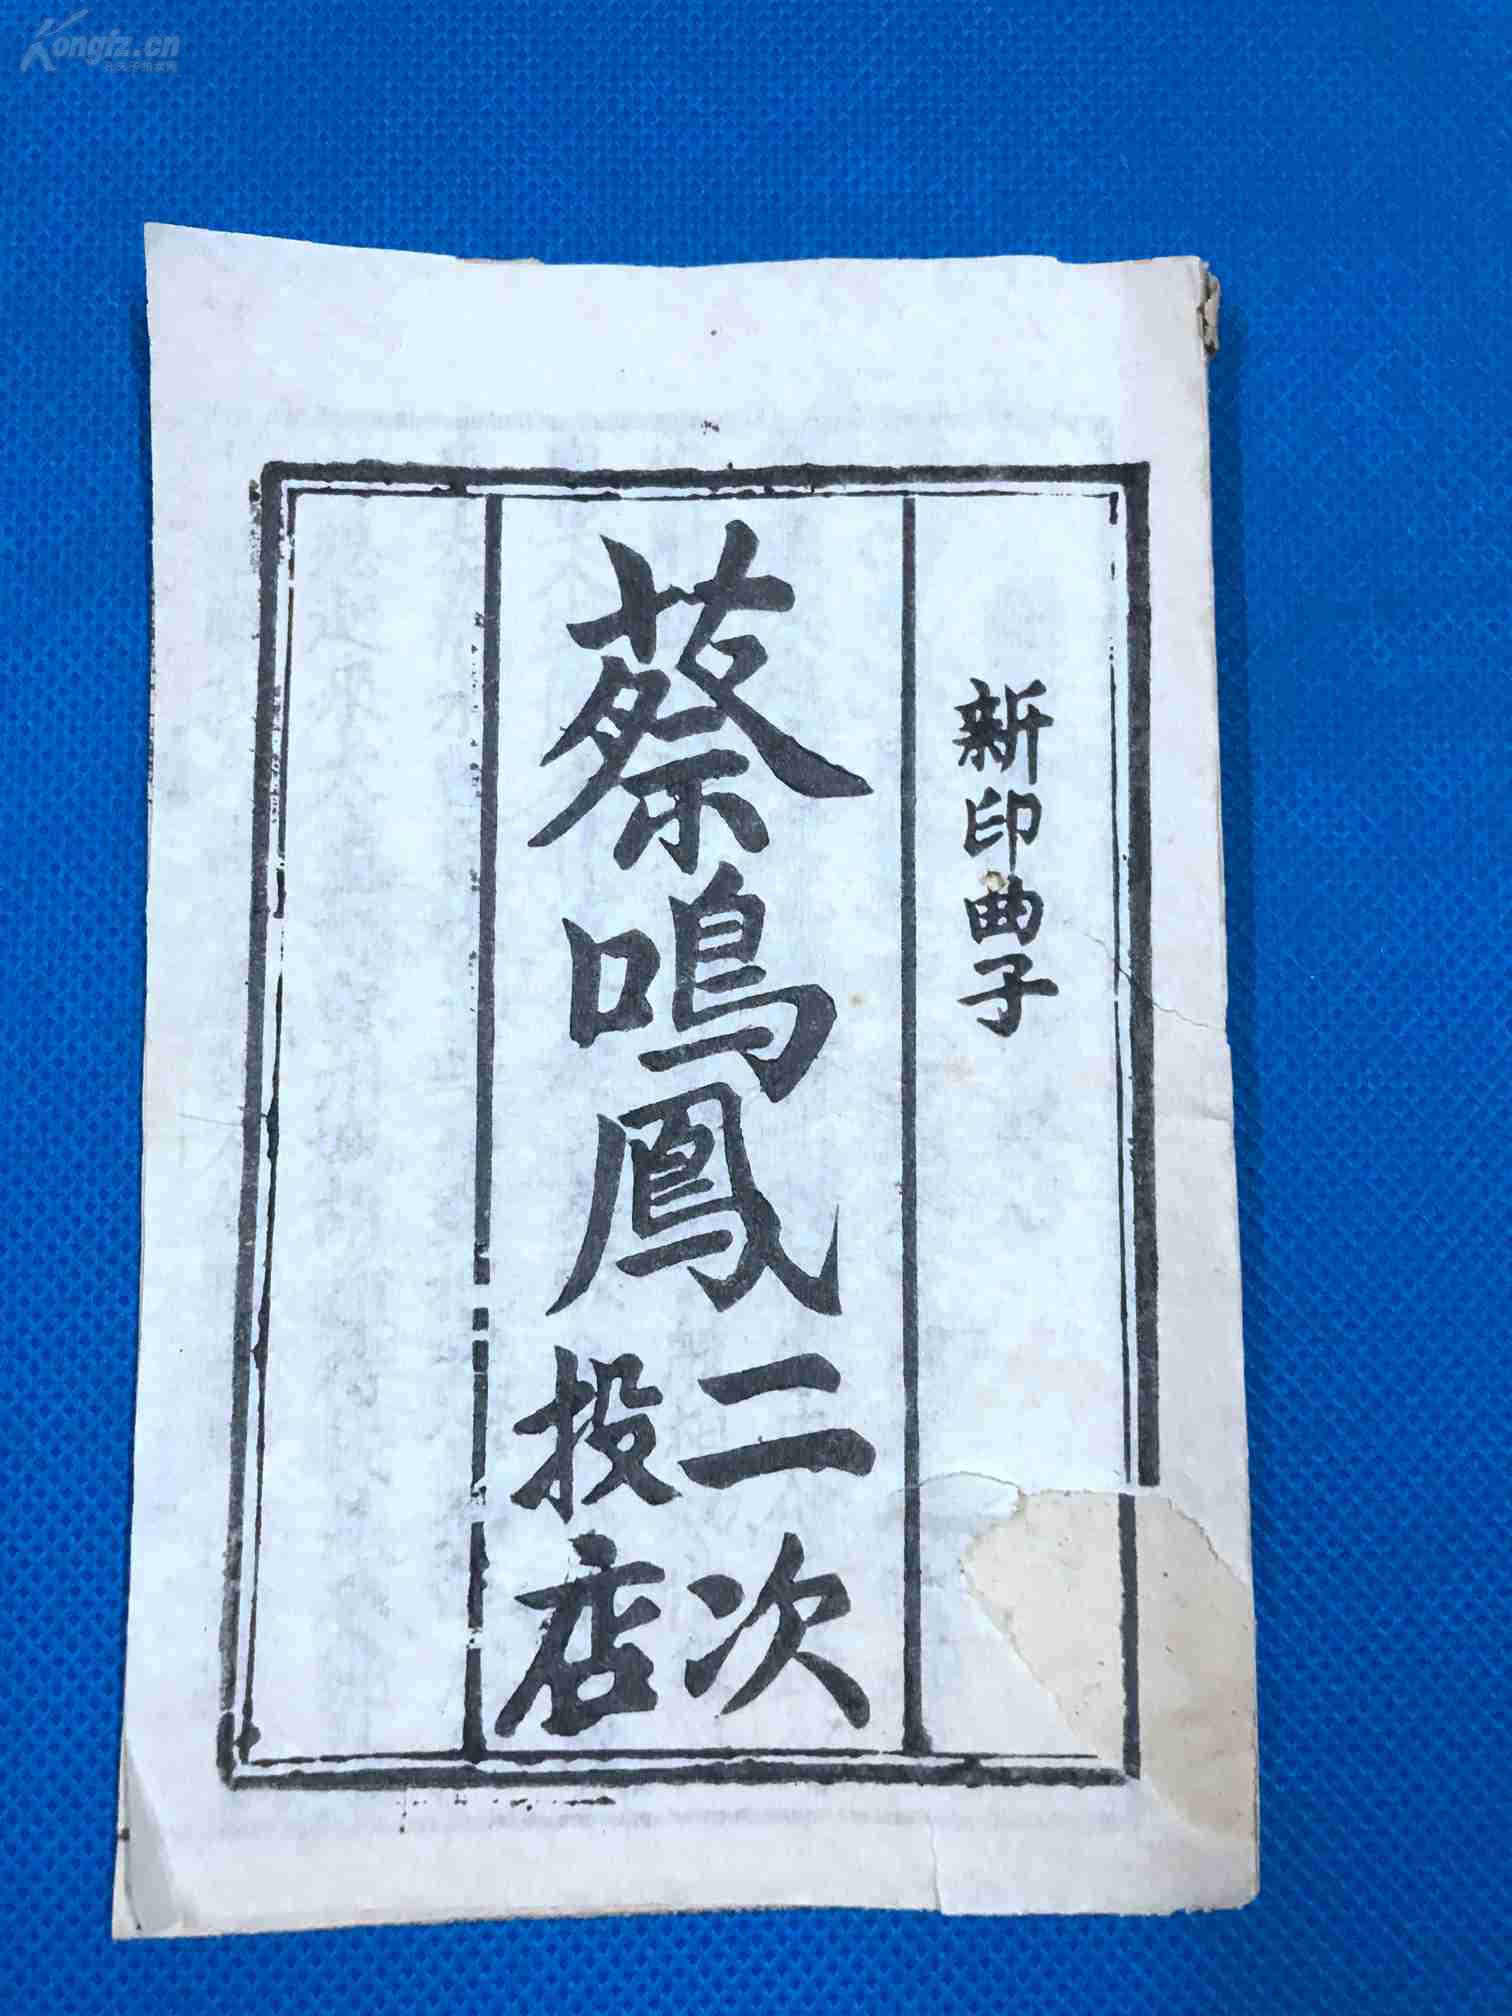 Kongfz.cn
孔夫子拍卖网
新印曲子
蔡鳴鳳
二次
投店